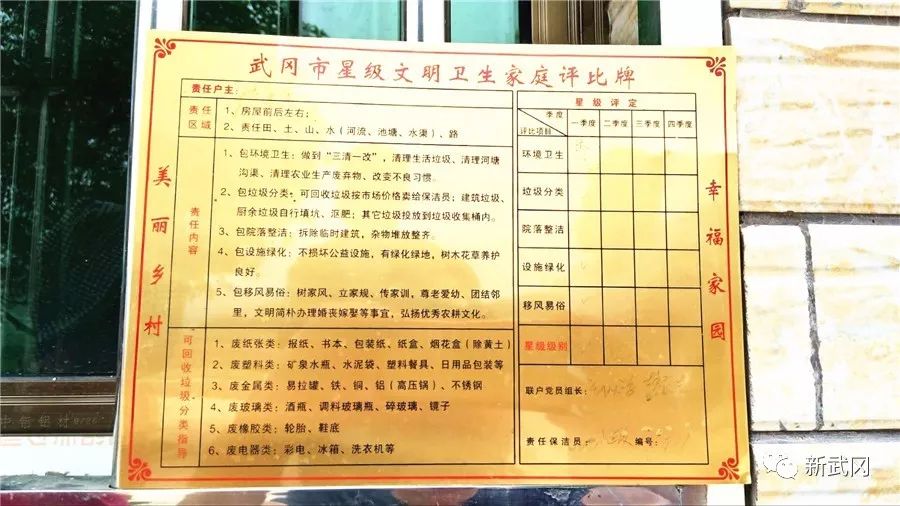 武冈市星级文明卫生家庭评比牌
美丽乡村
责任户主：
责任区域
1、房屋前后左右；
2、责任田、土、山、水（河流、池塘、水渠）、路
责任内容
1、包环境卫生：做到“三清一改”，清理生活垃圾、清理河塘
沟渠、清理农业生产废弃物、改变不良习惯。
2、包垃圾分类：可回收垃圾按市场价格卖给保洁员；建筑垃圾、
厨余垃圾自行填坑、沤肥；其它垃圾投放到垃圾收集桶内。
3、包院落整洁：拆除临时建筑，杂物堆放整齐。
4、包设施绿化：不损坏公益设施，有绿化绿地，树木花草养护
良好。
5、包移风易俗：树家风、立家规、传家训，尊老爱幼、团结邻
里，文明简朴办理婚丧嫁娶等事宜，弘扬优秀农耕文化。
可回收垃圾分类指导
1、废纸张类：报纸、书本、包装纸、纸盒、烟花盒（除黄土）
2、废塑料类：矿泉水瓶、水泥袋、塑料餐具、日用品包装等
3、废金属类：易拉罐、铁、铜、铝（高压锅）、不锈钢
4、废玻璃类：酒瓶、调料玻璃瓶、碎玻璃、镜子
5、废橡胶类：轮胎、鞋底
6、废电器类：彩电、冰箱、洗衣机等
星级评定
季度
评比项目
一季度 二季度 三季度 四季度
环境卫生
垃圾分类
院落整洁
设施绿化
移风易俗
星级级别
联户党员组长：
责任保洁员： 编号：
幸福家园
新武冈